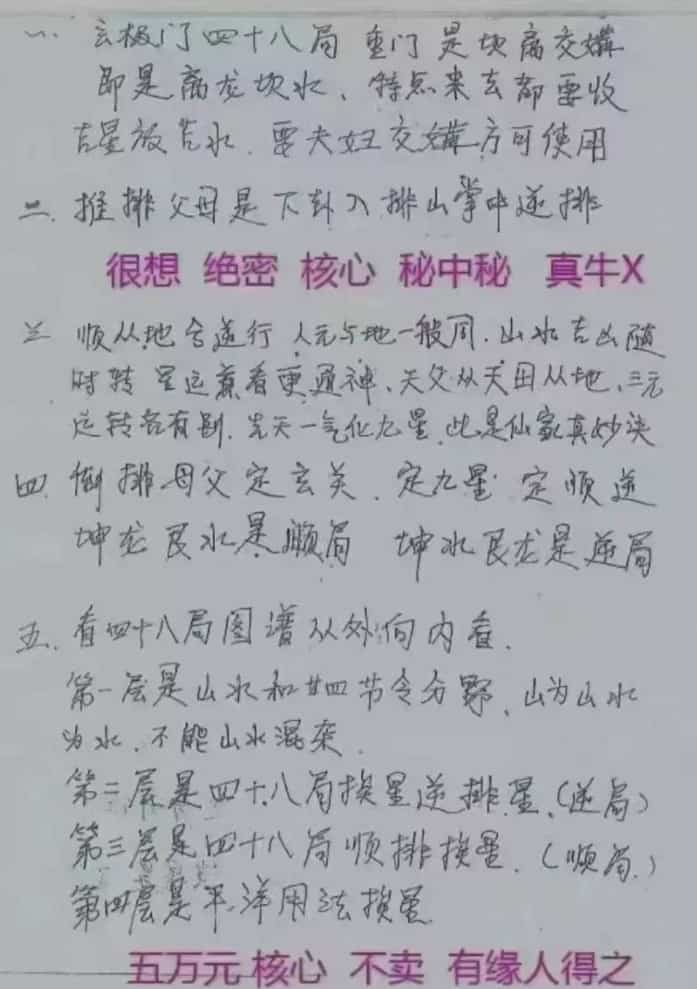 一、玄极门四十八局 重门是坎离交媾
即是离龙坎水、特点来去都要收
吉星放吉水.要夫妇交媾方可使用
二.推排父母是下卦入排山掌中逆排
很想 绝密 核心 秘中秘 真牛X
三 顺从地令逆行 人元与地一般同.山水吉凶随
时转 星运兼看更通神、天父从天母从地、三元
运转各有别.先天一气化九星.此是仙家真妙决
四、倒排母父定玄关、定九星 定顺逆
坤龙艮水是顺局 坤水艮龙是逆局
五、看四十八局图谱从外向内看.
第一层是山水和廿四节令分野、山为山水
为水、不能山水混杂.
第二层是四十八局挨星逆排星、(逆局)
第三层是四十八局顺排挨星.(顺局.)
第四层是平洋用法挨星
五万元核心 不卖 有缘人得之